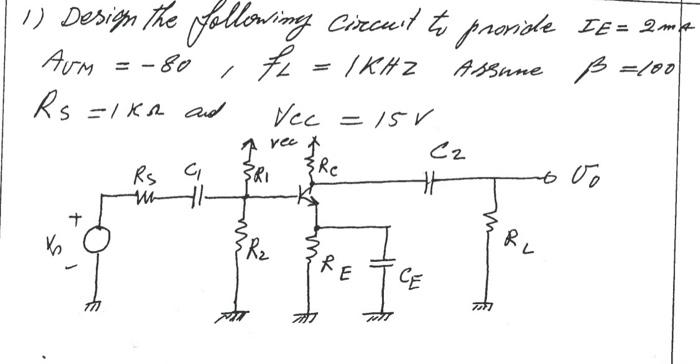 1) Design the following circuit to provide IE = 2mA
AVM = -80 , fL = 1KHZ Assume β = 100
Rs = 1KΩ and Vcc = 15V
vcc
Rs C1 R1 Rc C2 Vo
Vs
R2 RE CE RL